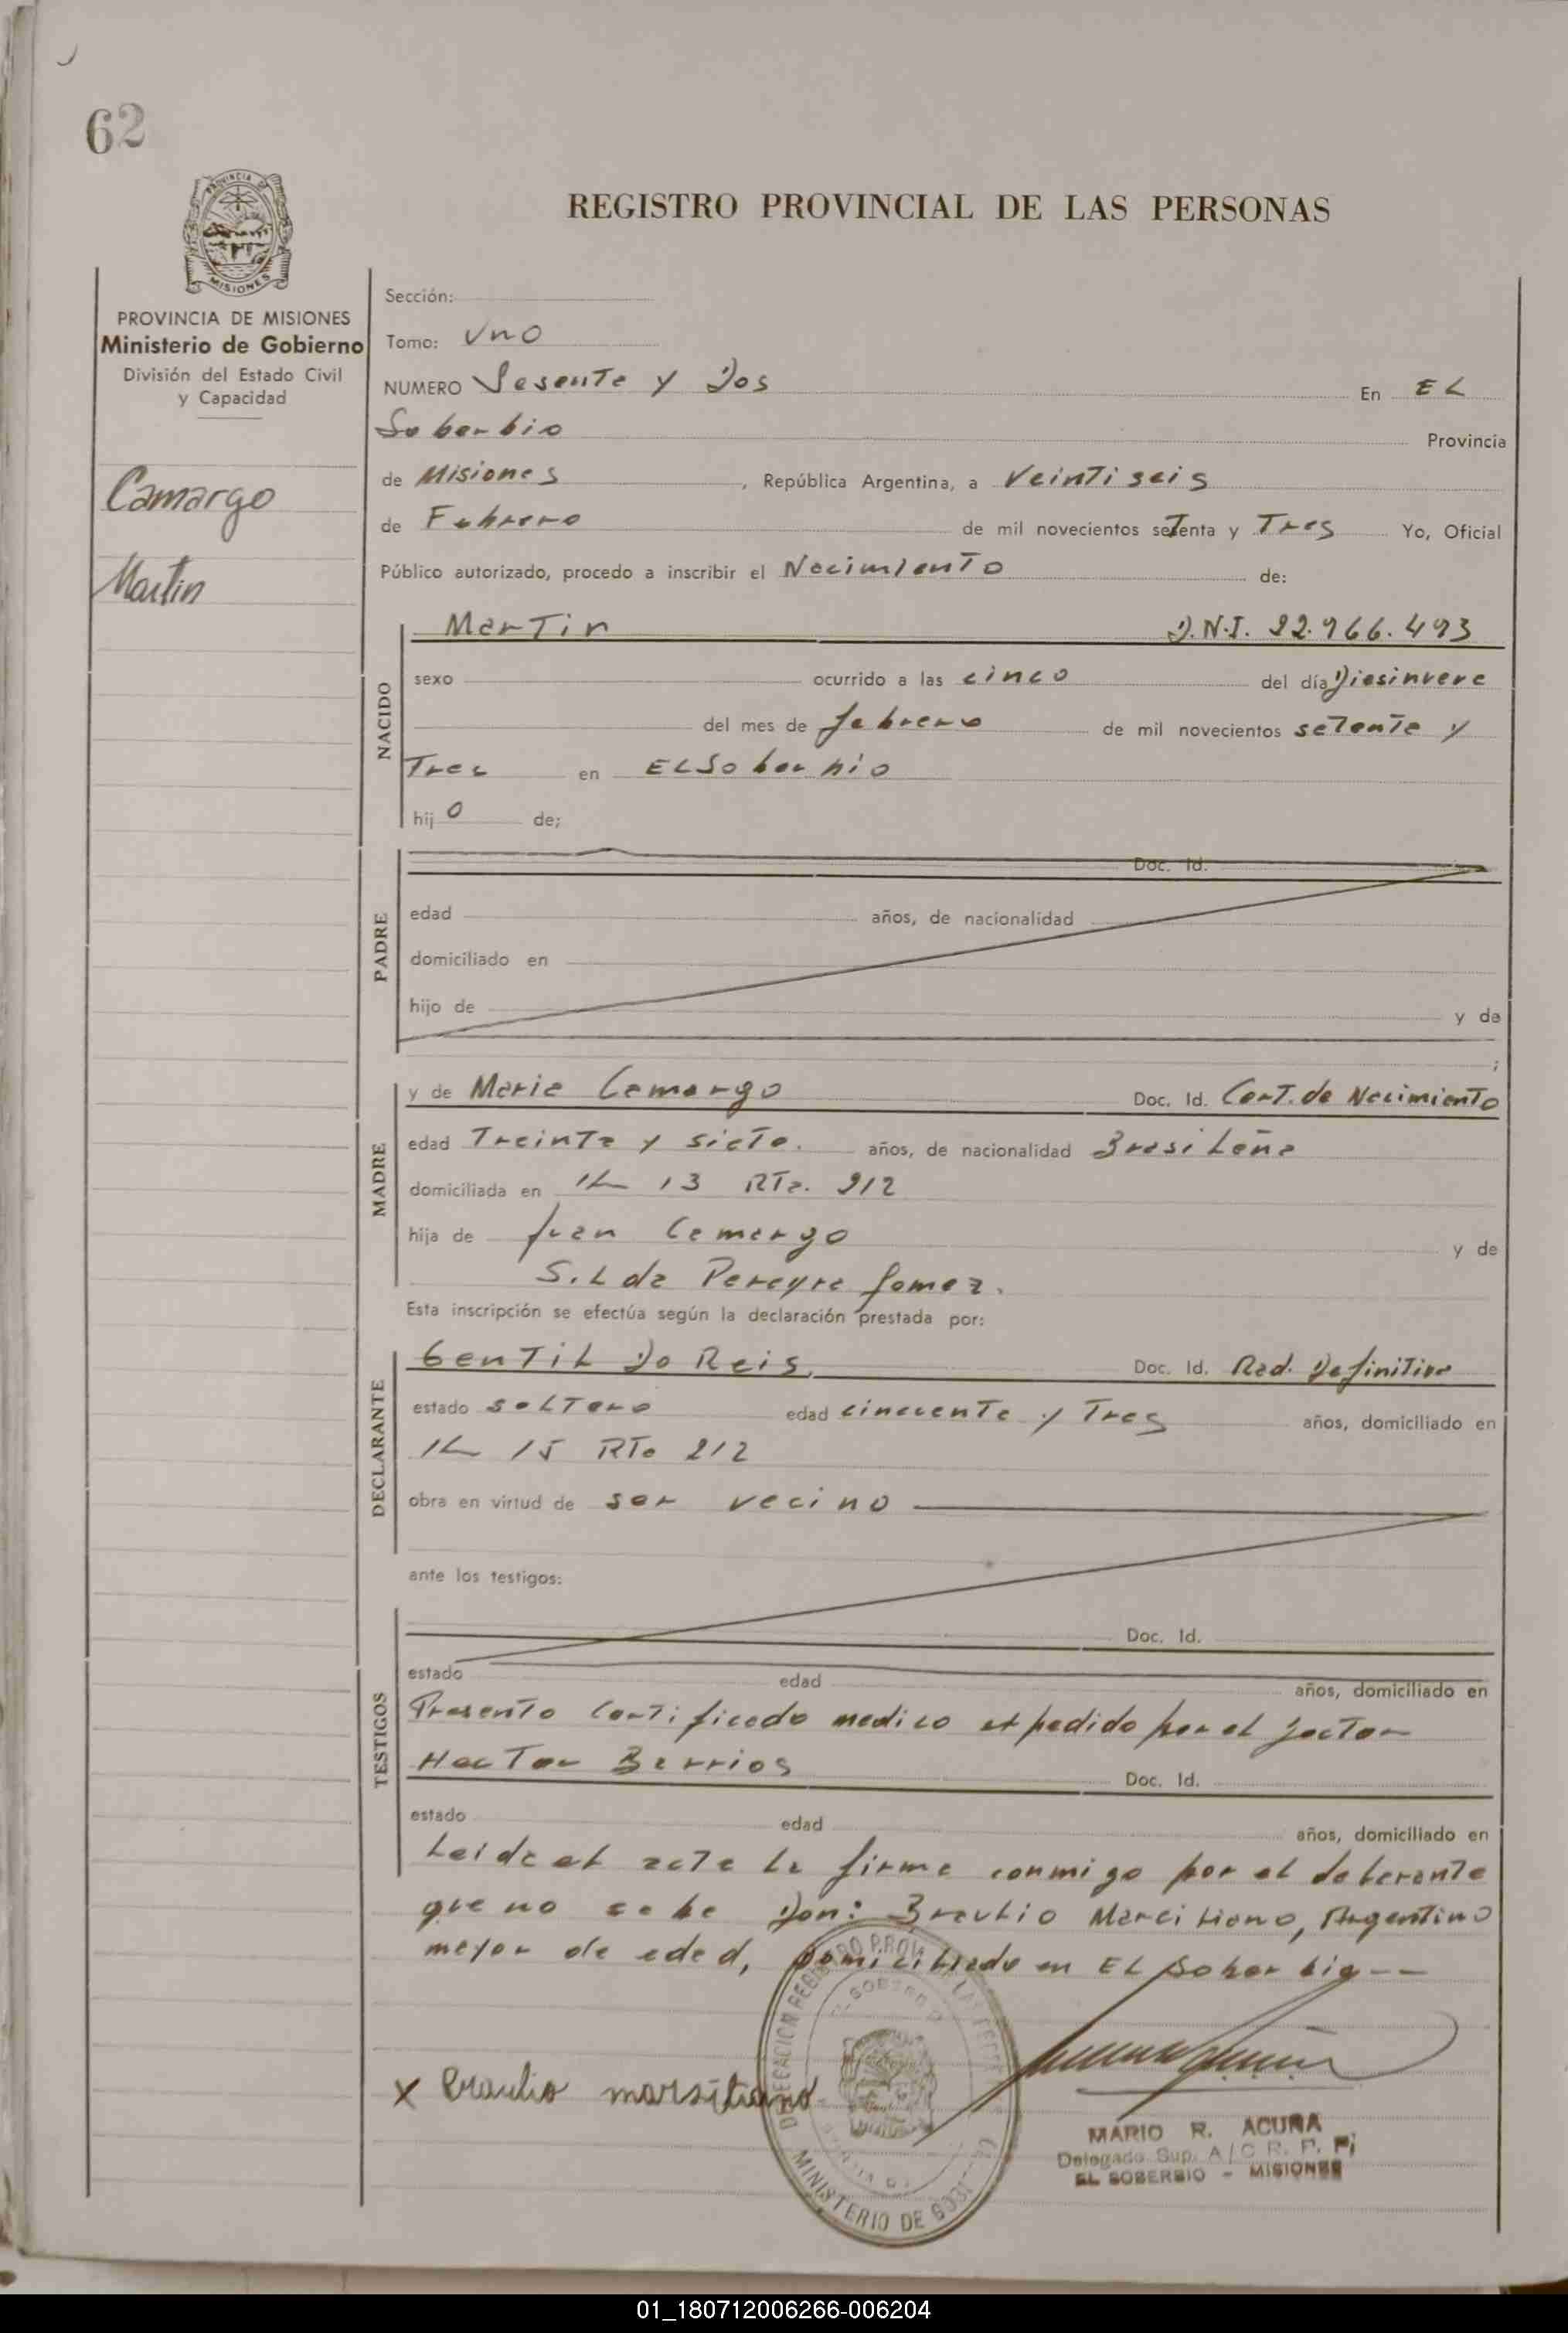 62
REGISTRO PROVINCIAL DE LAS PERSONAS
PROVINCIA DE
MISIONES
PROVINCIA DE MISIONES
Ministerio de Gobierno
División del Estado Civil
y Capacidad
Camargo
Martin
Sección:
Tomo: Uno
NUMERO Sesente y Dos En EL
Soberbio Provincia
de Misiones, República Argentina, a Veintiseis
de Febrero de mil novecientos setenta y Tres Yo, Oficial
Público autorizado, procedo a inscribir el Necimiento de:
NACIDO
Martin D.N.I. 22.966.493
sexo ocurrido a las cinco del día Diesinueve
del mes de febrero de mil novecientos setente y
Tres en EL Soberbio
hij o de;
PADRE
Doc. Id.
edad años, de nacionalidad
domiciliado en
hijo de y de
;
MADRE
y de Marie Camargo Doc. Id. Cert. de Necimiento
edad Treinta y siete. años, de nacionalidad Brasileña
domiciliada en 13 RTa. 212
hija de Juan Camargo y de
Pereyra Gomez.
Esta inscripción se efectúa según la declaración prestada por:
DECLARANTE
Gentil Do Reis, Doc. Id. Rad. Definitiva
estado soltero edad cincuente y Tres años, domiciliado en
15 RTa 212
obra en virtud de ser vecino
ante los testigos:
TESTIGOS
Doc. Id.
estado edad años, domiciliado en
Presento Certificado medico expedido por el Doctor
Hector Berrios Doc. Id.
estado edad años, domiciliado en
Leida el acta la firma conmigo por el
que no sabe Don: Braulio Marciliano, Argentino
mayor de edad, Domiciliado en EL Soberbio--
x Braulio marsiliano
MINISTERIO DE
MARIO R. ACUÑA
Delegado Sup. A/C R. P. P.
EL SOBERBIO - MISIONES
01_180712006266-006204